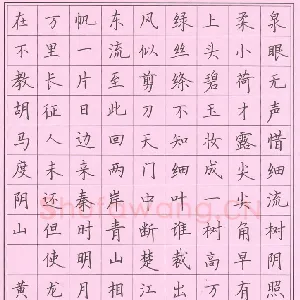 泉眼无声惜细流树阴照
柔小荷才露尖尖角早有
上头碧玉妆成一树高万
绿丝绦不知细叶谁裁出
风似剪刀天门中断楚江
东流至此回两岸青山相
帆一片日边来秦时明月
万里长征人未还但使龙
在不教胡马度阴山 黄
Shufawang.CN